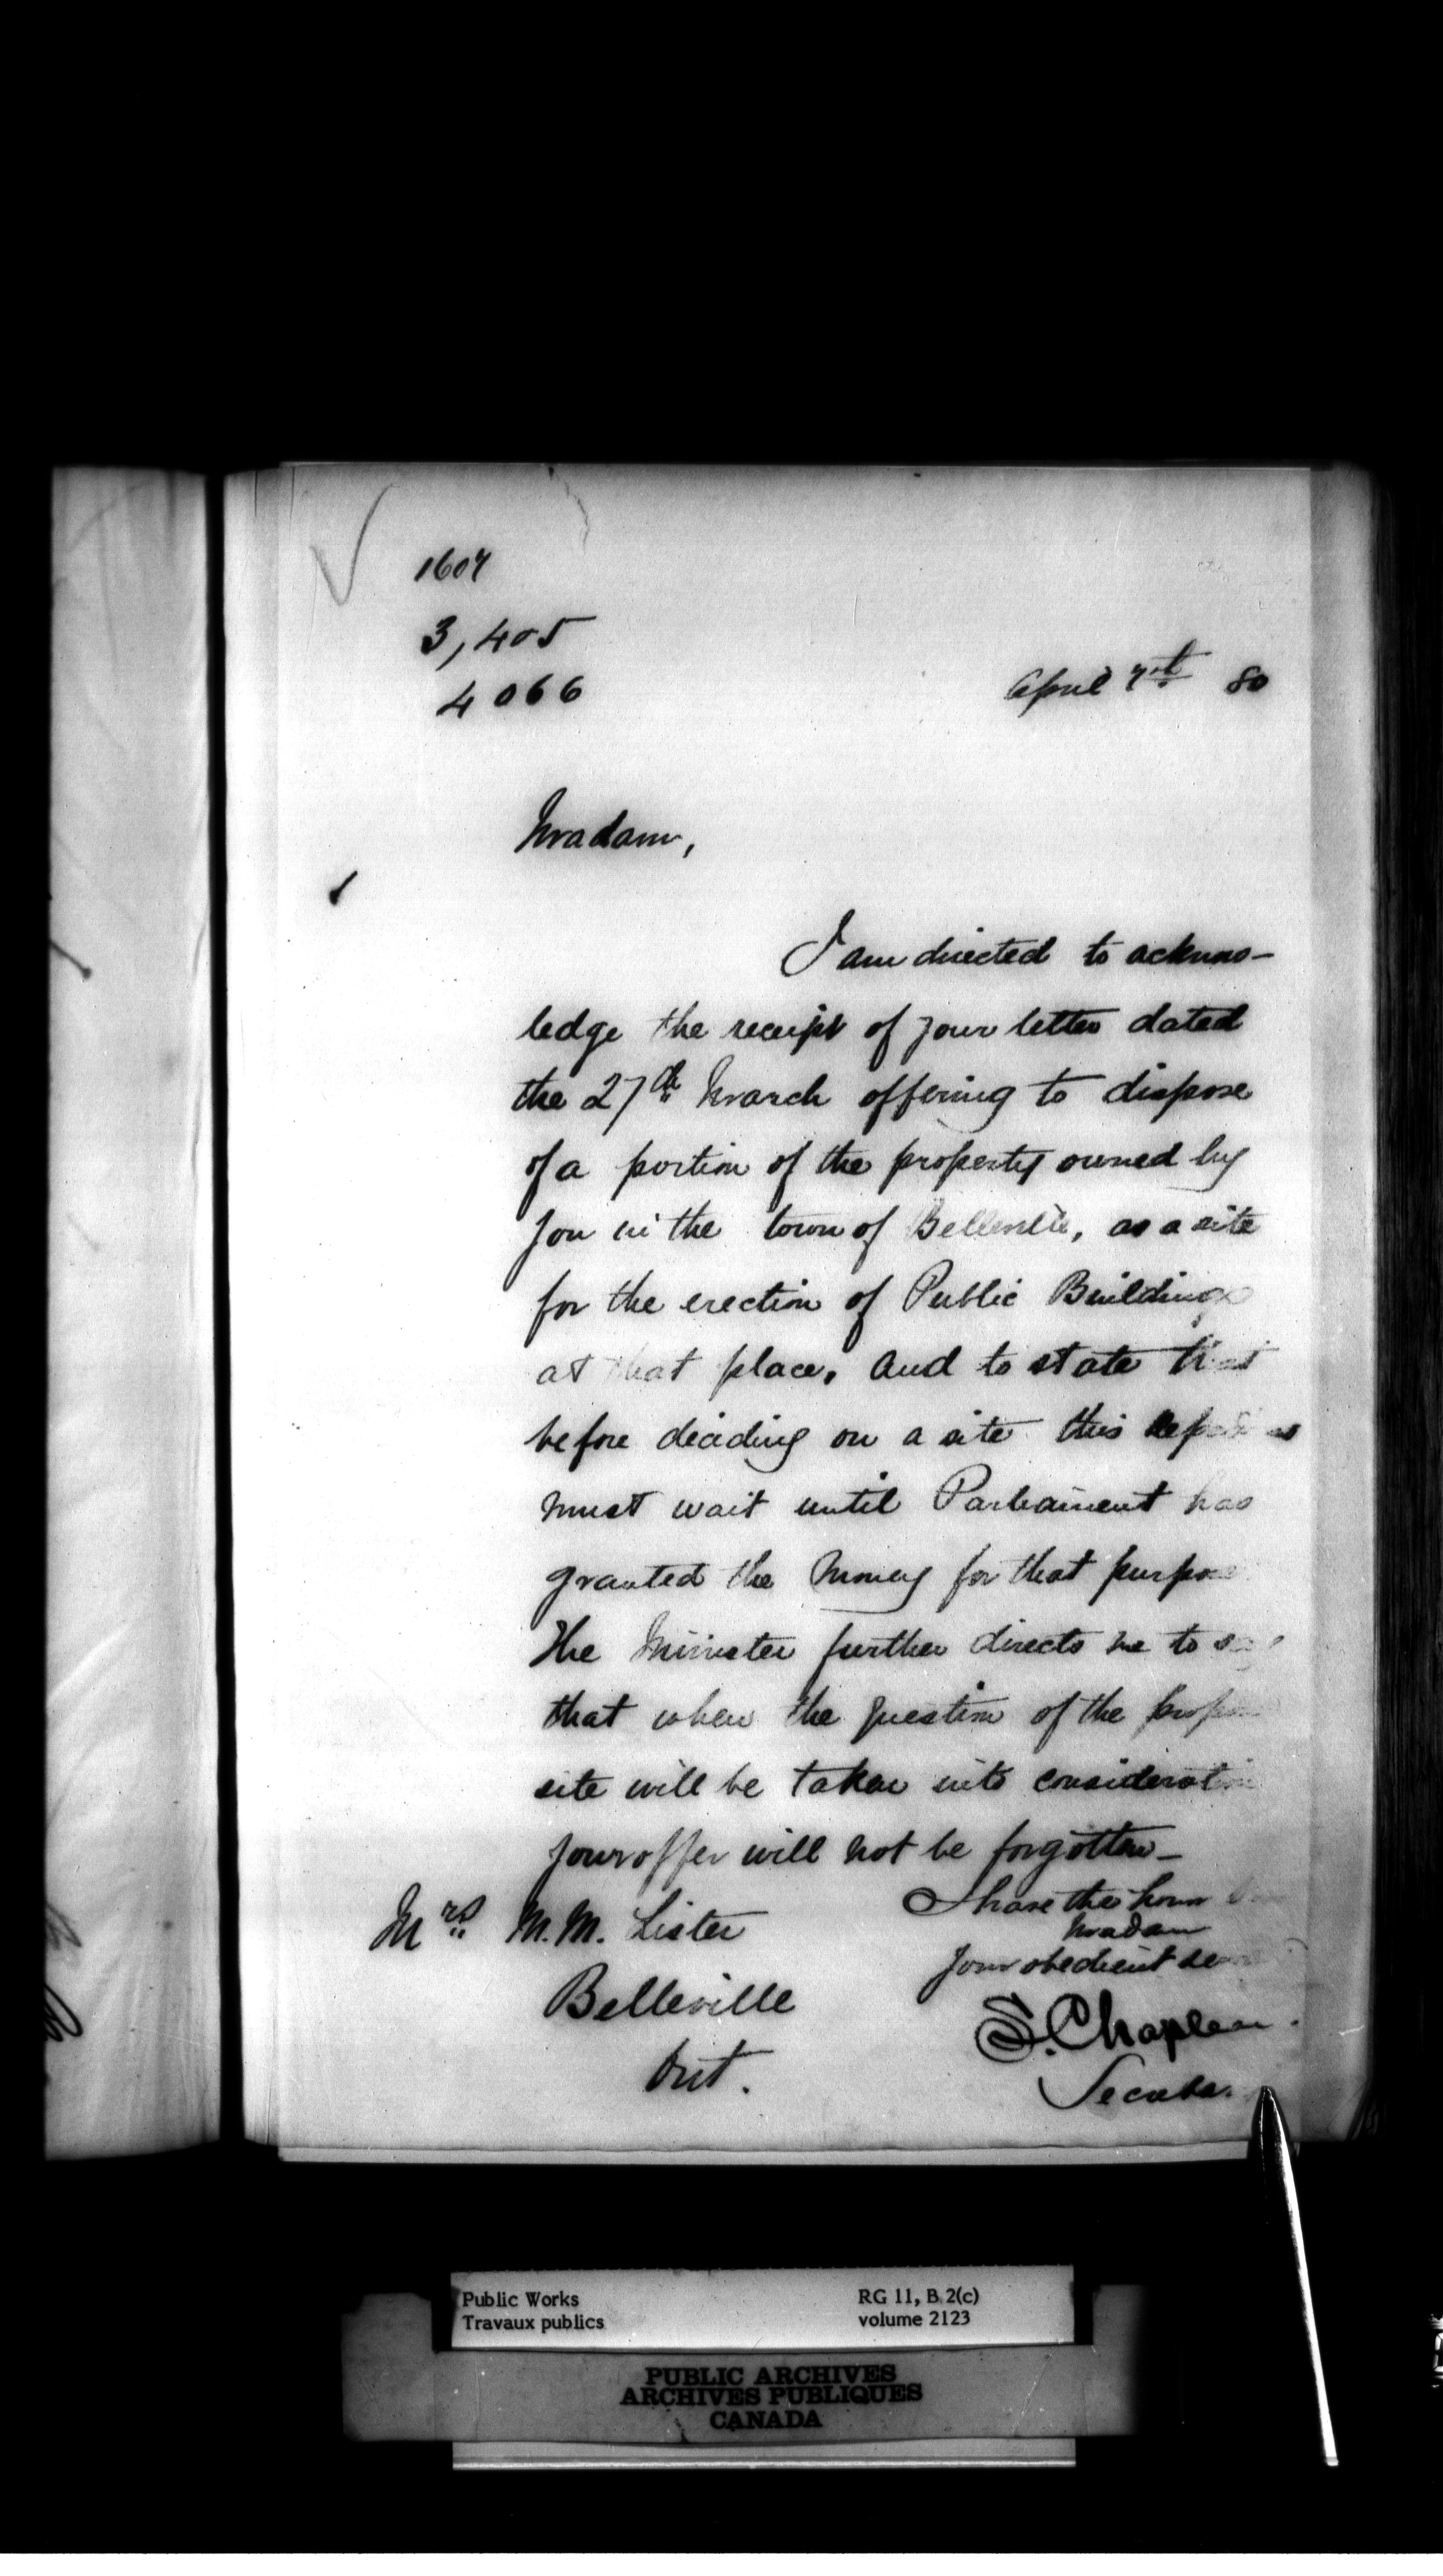 1607
3,405
4066
April 7th 80
Madam,
I am directed to acknow-
ledge the receipt of your letter dated
the 27th March offering to dispose
of a portion of the property owned by
you in the town of Belleville, as a site
for the erection of Public Buildings
at that place, and to state that
before deciding on a site this
must wait until Parliament has
granted the money for that purpose
The Minister further directs me to say
that when the question of the
site will be taken into consideration
your offer will not be forgotten_
I have the honor
Madam
Your obedient
S. Chapleau
Mrs M. M. Lister
Belleville
Ont.
Public Works
Travaux publics
RG 11, B 2(c)
volume 2123
PUBLIC ARCHIVES
ARCHIVES PUBLIQUES
CANADA